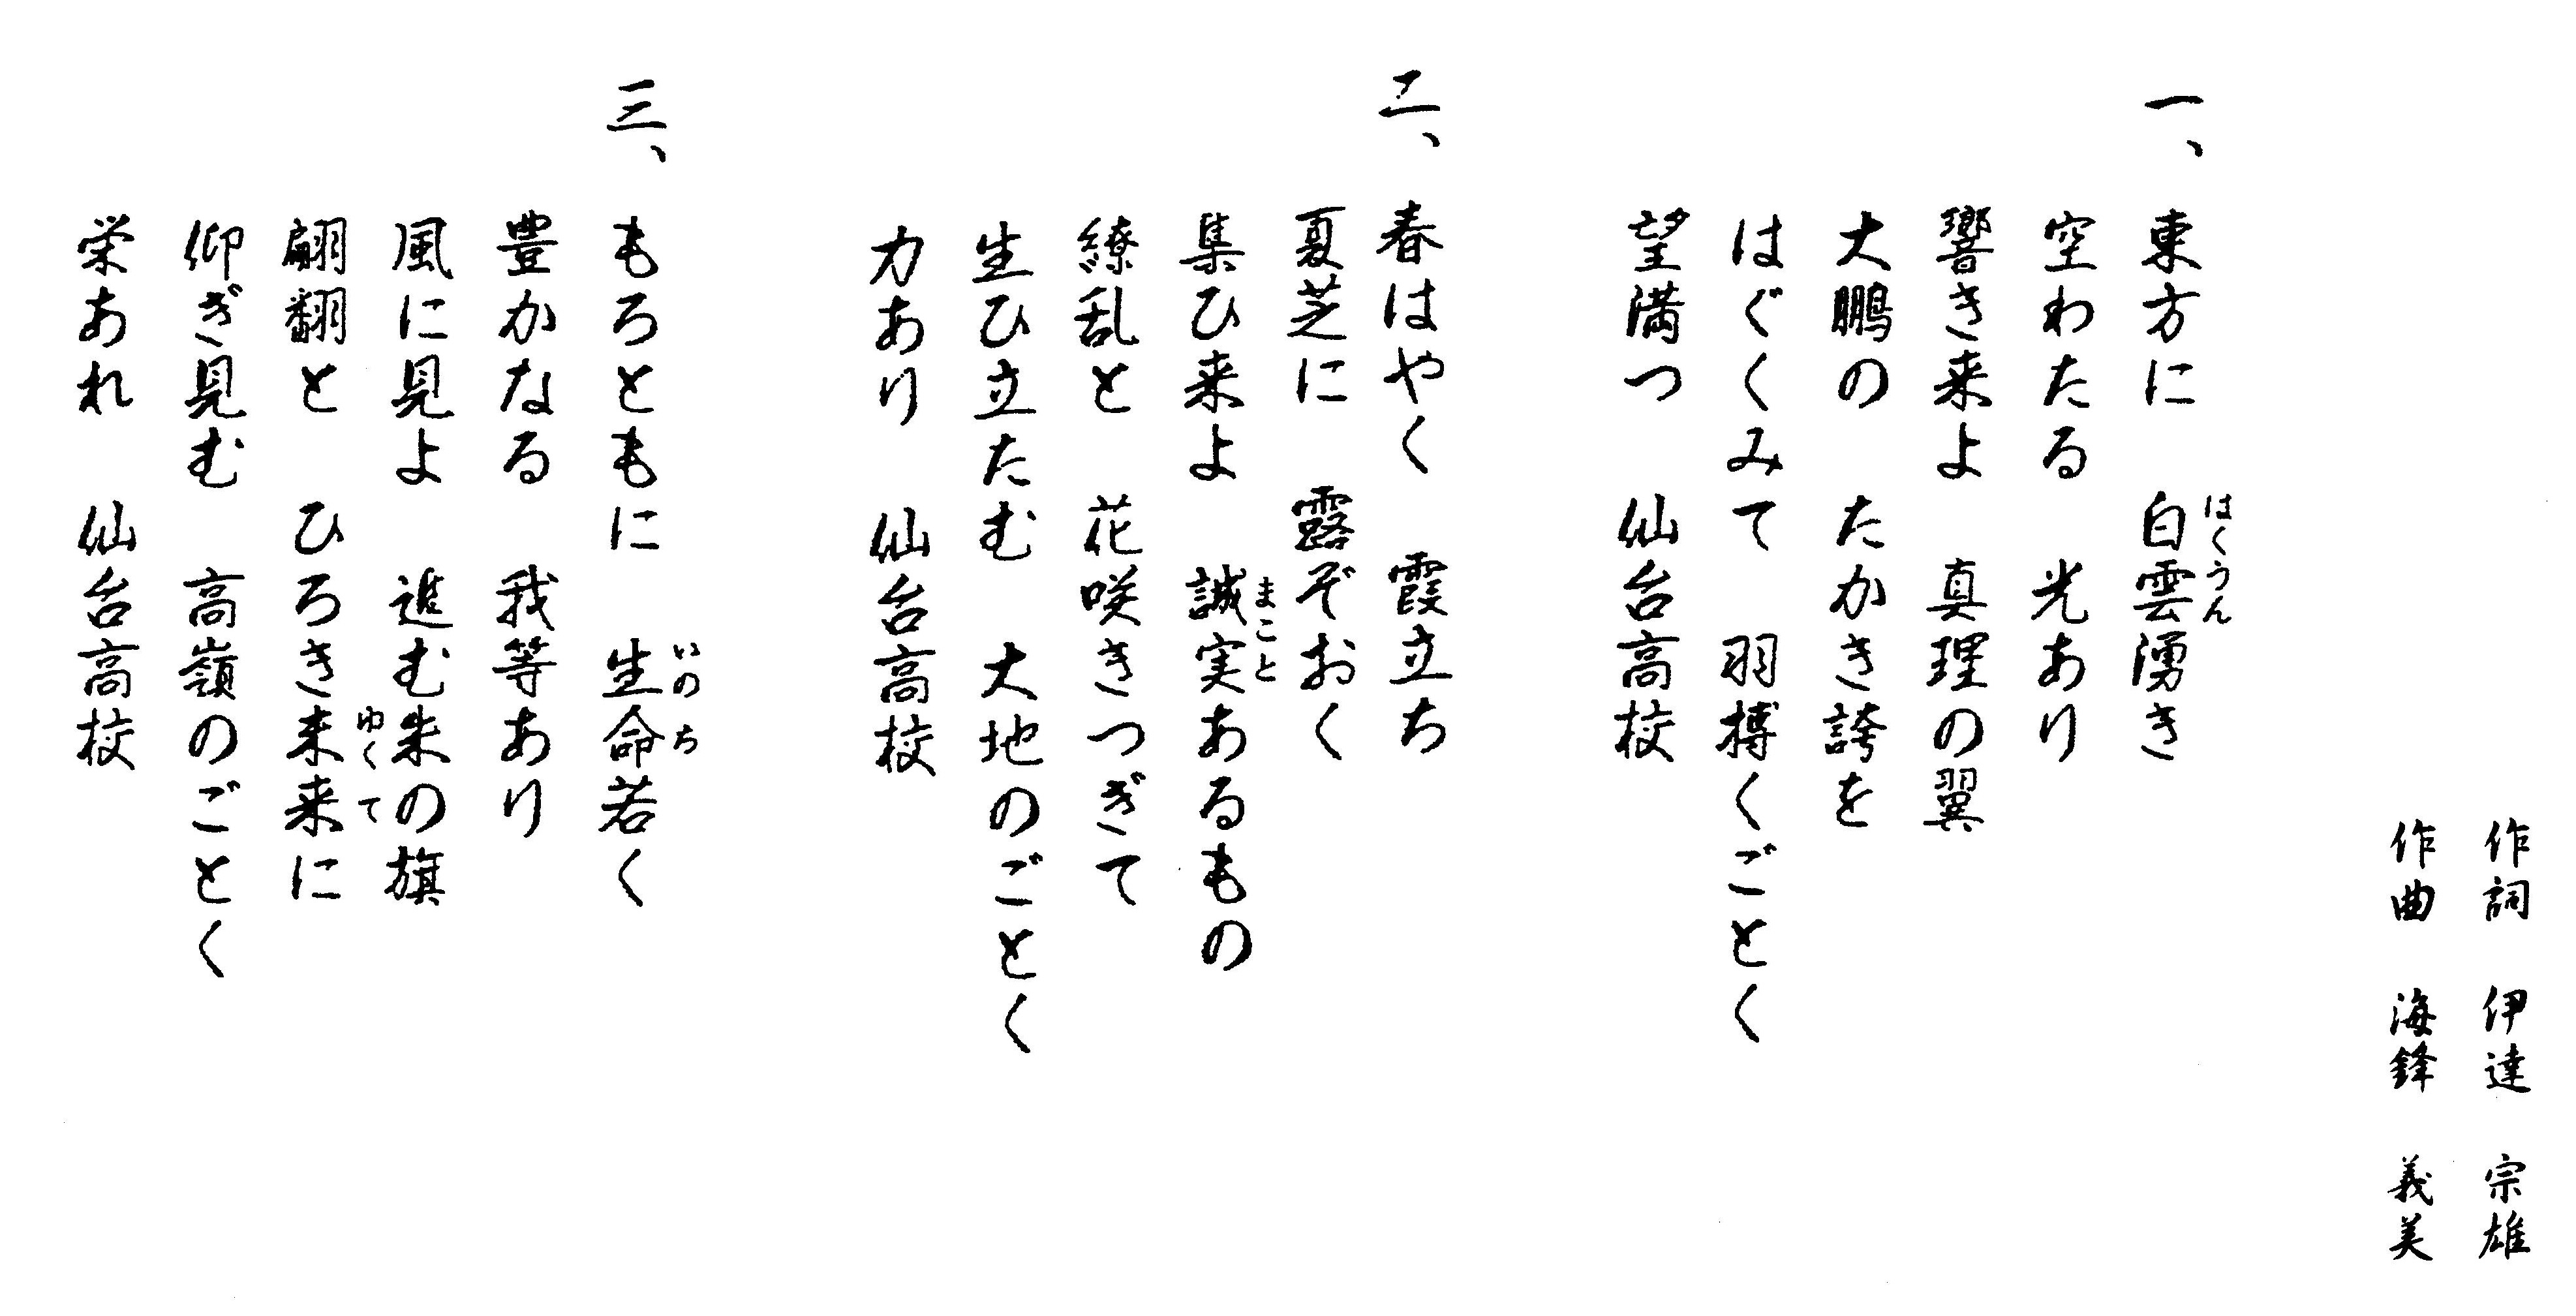 作詞　伊達　宗雄
作曲　海鋒　義美
一、東方に　白雲湧き
はくうん
空わたる　光あり
響き来よ　真理の翼
大鵬の　たかき誇を
はぐくみて　羽搏くごとく
望満つ　仙台高校
二、春はやく　霞立ち
夏芝に　露ぞおく
集ひ来よ　誠実あるもの
まこと
繚乱と　花咲きつぎて
生ひ立たむ　大地のごとく
力あり　仙台高校
三、もろともに　生命若く
いのち
豊かなる　我等あり
風に見よ　進む朱の旗
翩翻と　ひろき未来に
ゆくて
仰ぎ見む　高嶺のごとく
栄あれ　仙台高校